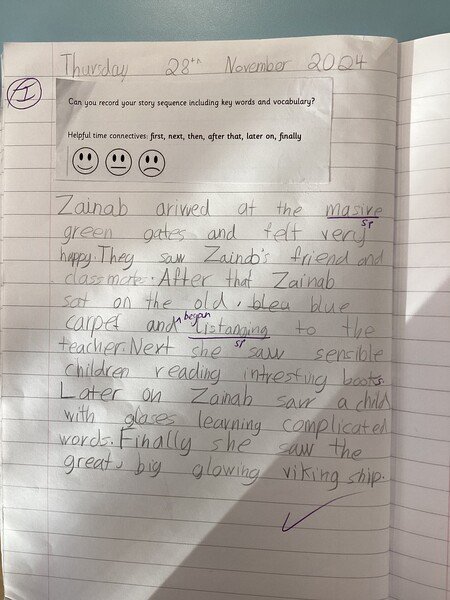 Thursday 28th November 2024
I
Can you record your story sequence including key words and vocabulary?
Helpful time connectives: first, next, then, after that, later on, finally
Zainab arived at the masive
sp
green gates and felt very
happy. They saw Zainab's friend and
classmate. After that Zainab
sat on the old, bleu blue
carpet and ^began listanging to the
sp
teacher. Next she saw sensible
children reading intresting books.
Later on Zainab saw a child
with glases learning complicated
words. Finally she saw the
great, big glowing viking ship.